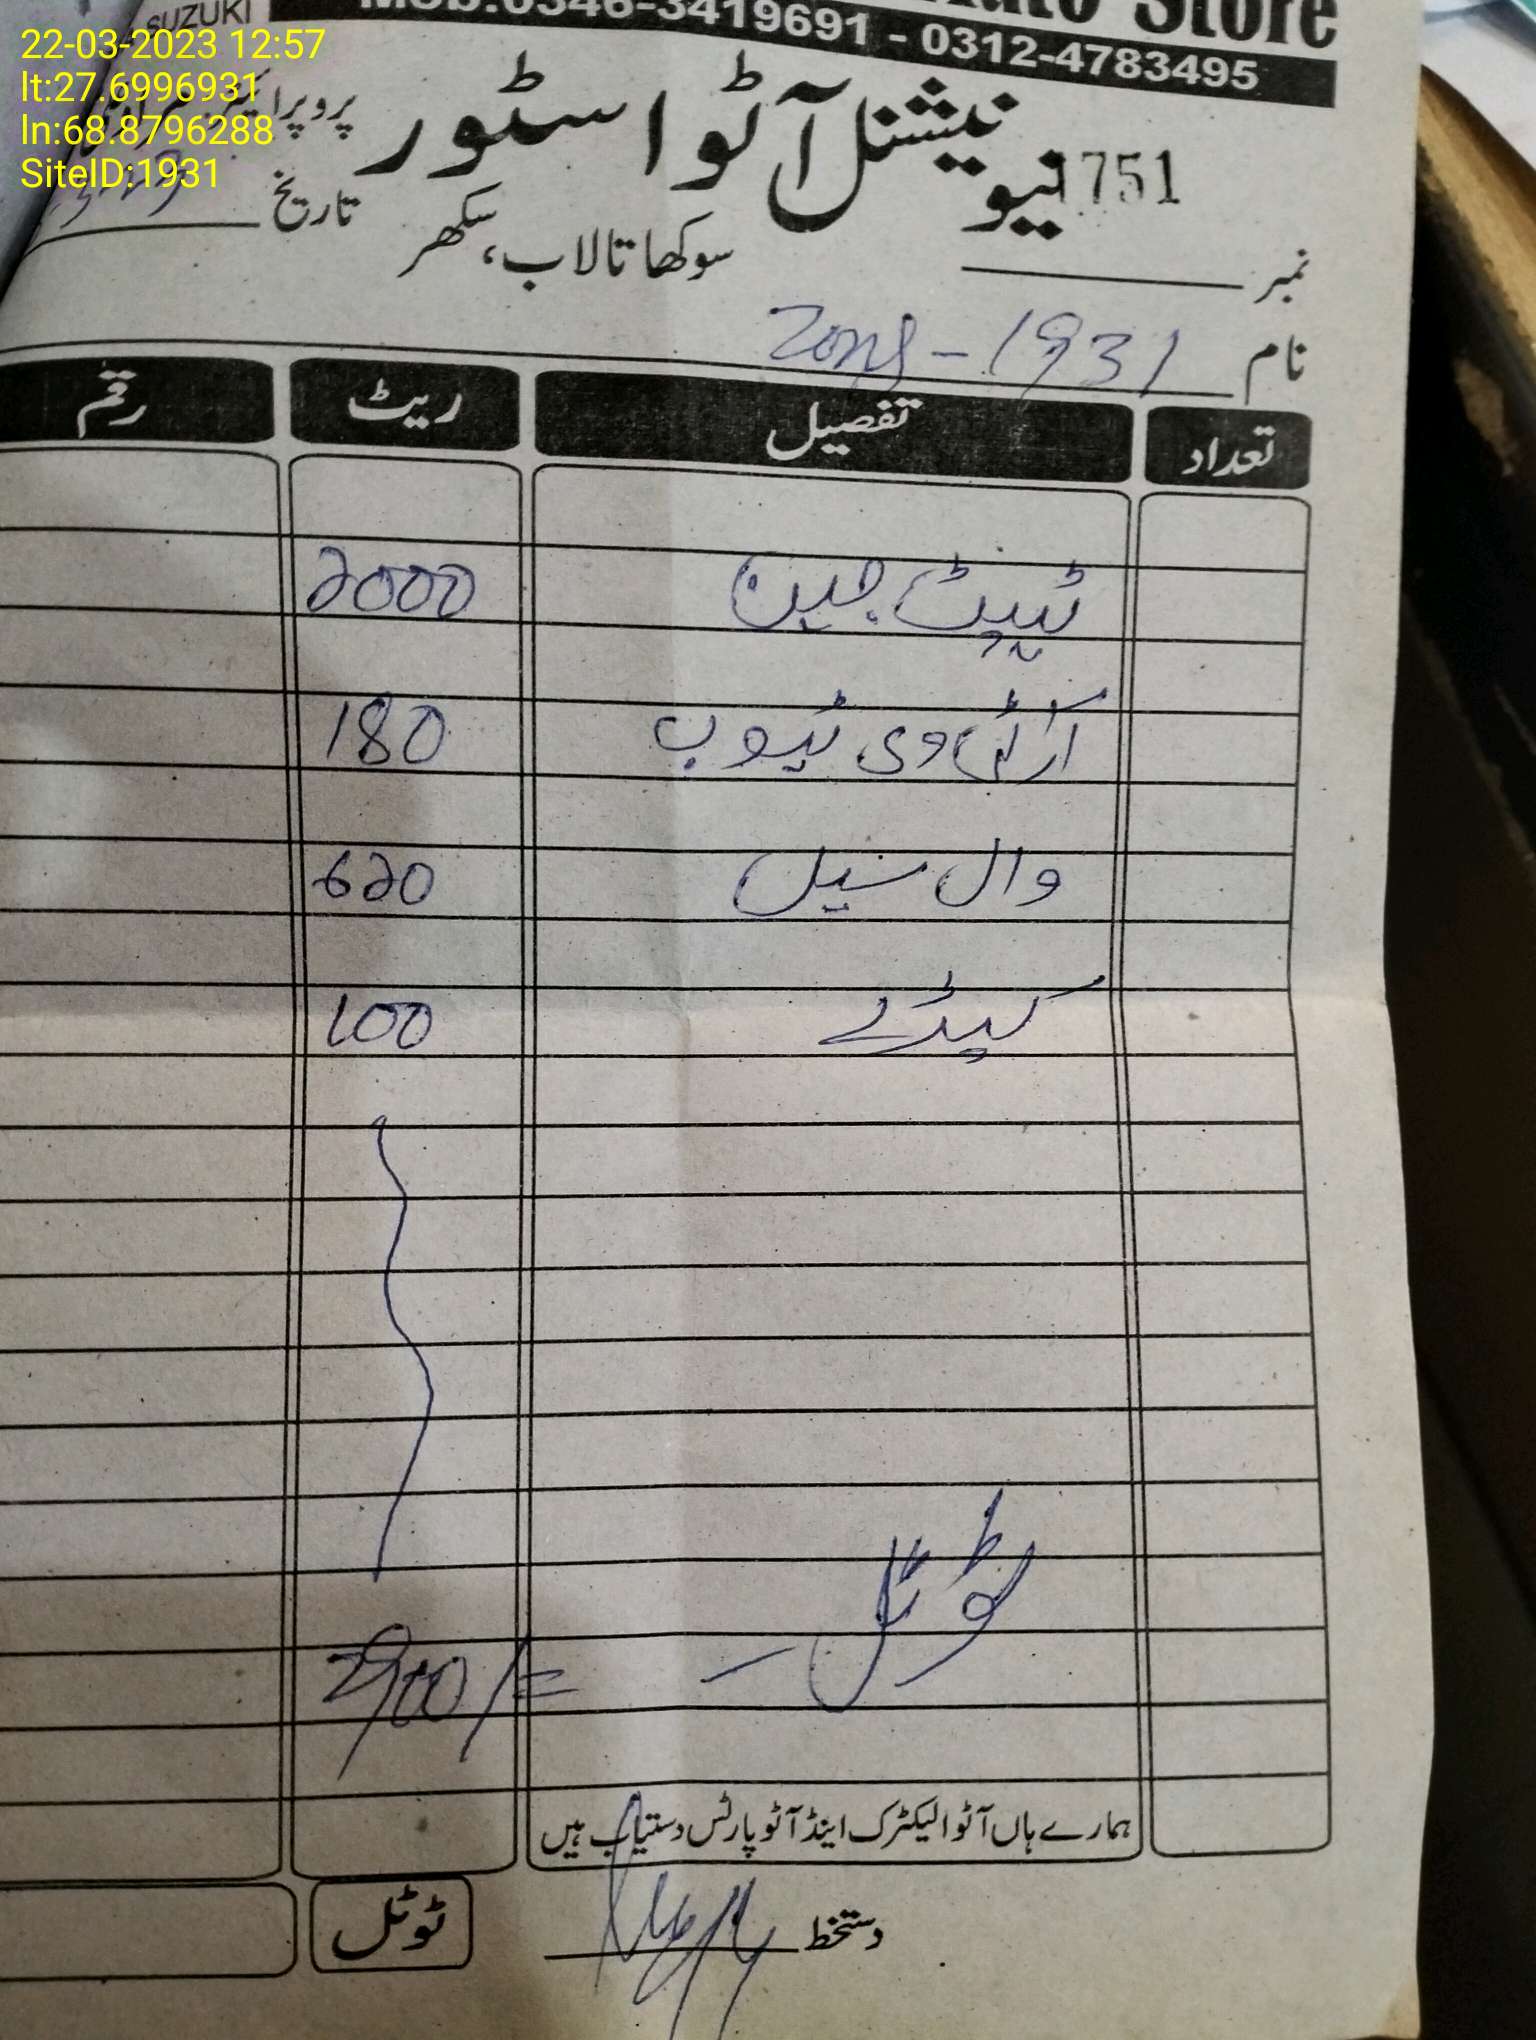 22-03-2023 12:57
lt:27.6996931
ln:68.8796288
SiteID:1931
SUZUKI
Auto Store
Mob:0346-3419691 - 0312-4783495
نیو نیشنل آٹو اسٹور
پروپرائیٹر
1751
سوکھا تالاب، سکھر
تاریخ
نمبر
نام Zong - 1931
تعداد تفصیل ریٹ رقم
ٹیپٹ چین 2000
آر ٹی وی ٹیوب 180
وال سیل 620
کپڑے 100
ٹوٹل - 2900/=
ہمارے ہاں آٹو الیکٹرک اینڈ آٹو پارٹس دستیاب ہیں
دستخط
ٹوٹل